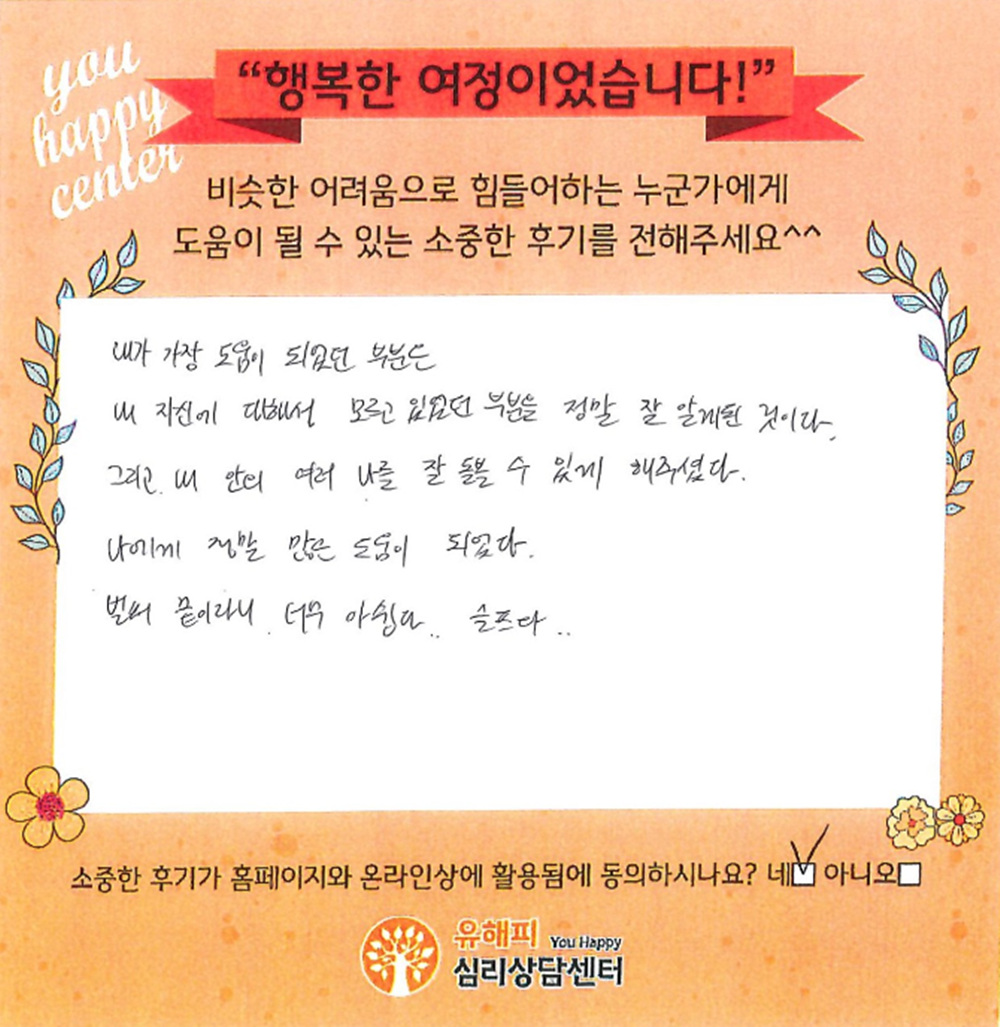 you
happy
center
“행복한 여정이었습니다!”
비슷한 어려움으로 힘들어하는 누군가에게
도움이 될 수 있는 소중한 후기를 전해주세요^^
내가 가장 도움이 되었던 부분은
내 자신에 대해서 모르고 있었던 부분을 정말 잘 알게된 것이다.
그리고 내 안의 여러 나를 잘 돌볼 수 있게 해주셨다.
나에게 정말 많은 도움이 되었다.
벌써 끝이라니 너무 아쉽다.. 슬프다..
소중한 후기가 홈페이지와 온라인상에 활용됨에 동의하시나요? 네 아니오
유해피 You Happy
심리상담센터